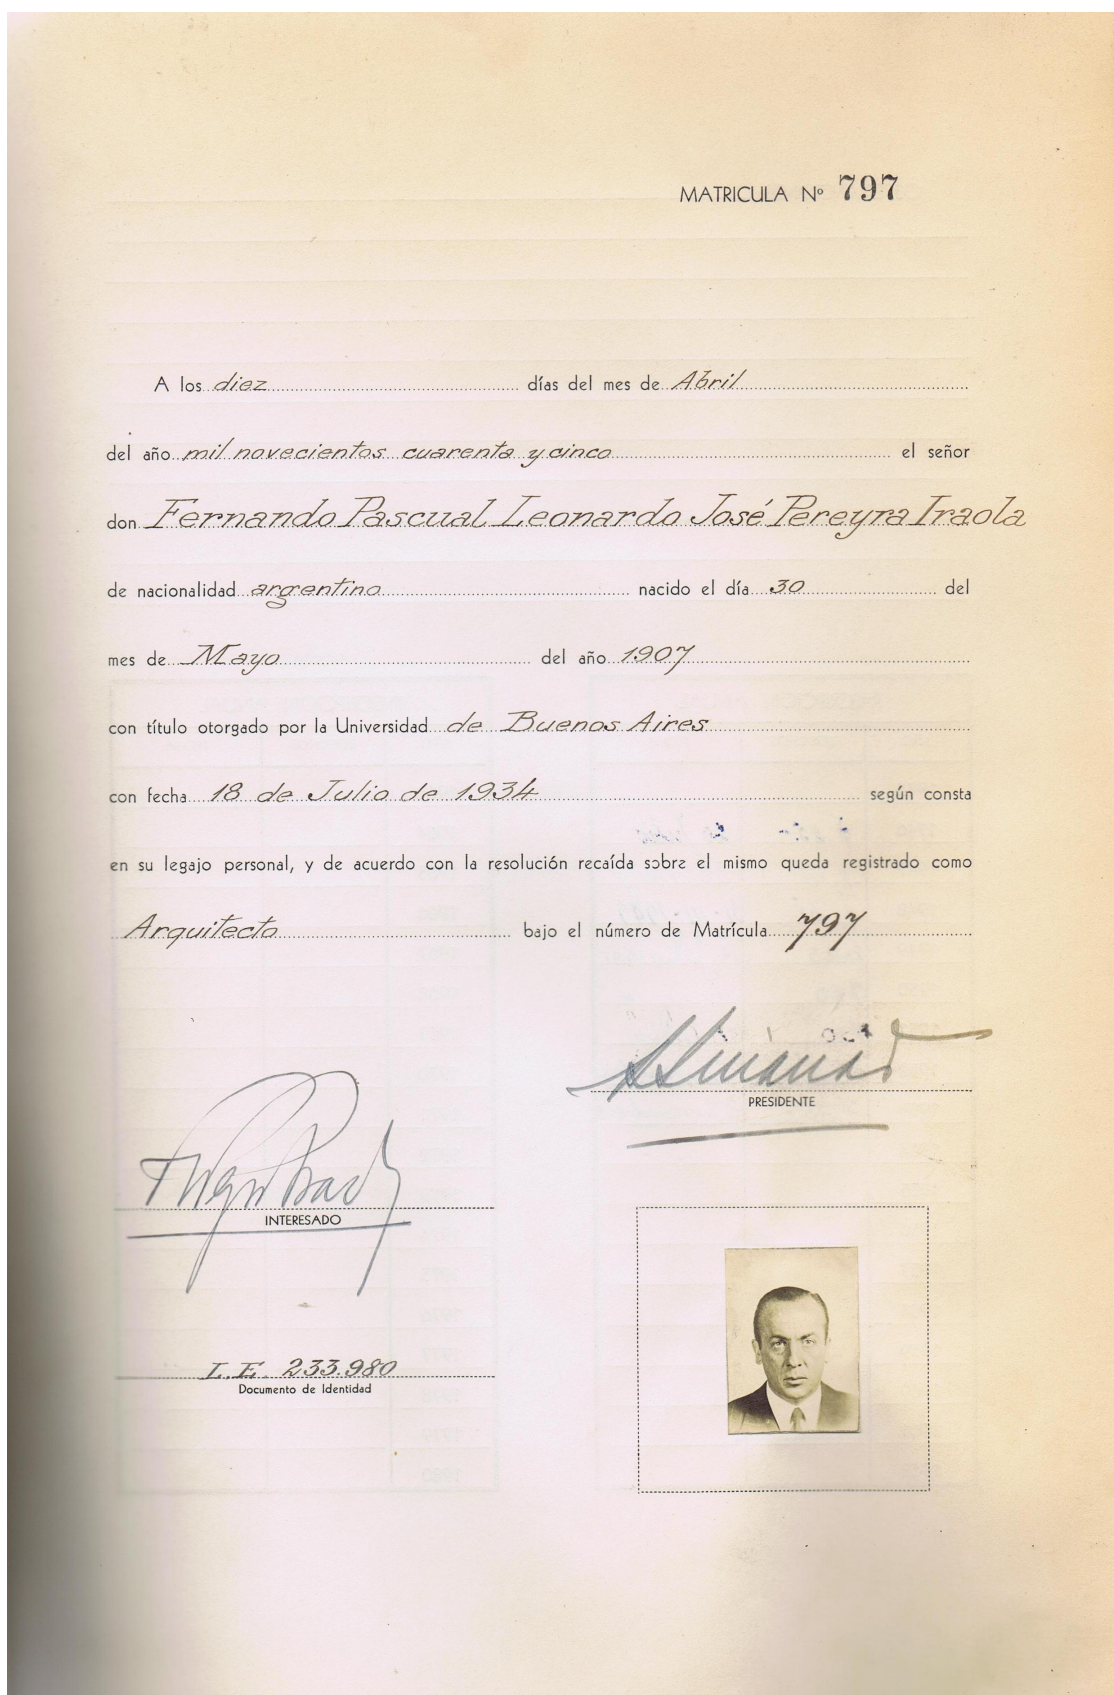 MATRICULA Nº 797
A los diez días del mes de Abril
del año mil novecientos cuarenta y cinco el señor
don Fernando Pascual Leonardo José Pereyra Iraola
de nacionalidad argentino nacido el día 30 del
mes de Mayo del año 1907
con título otorgado por la Universidad de Buenos Aires
con fecha 18 de Julio de 1934 según consta
en su legajo personal, y de acuerdo con la resolución recaída sobre el mismo queda registrado como
Arquitecto bajo el número de Matrícula 797
PRESIDENTE
INTERESADO
L.E. 233.980
Documento de Identidad